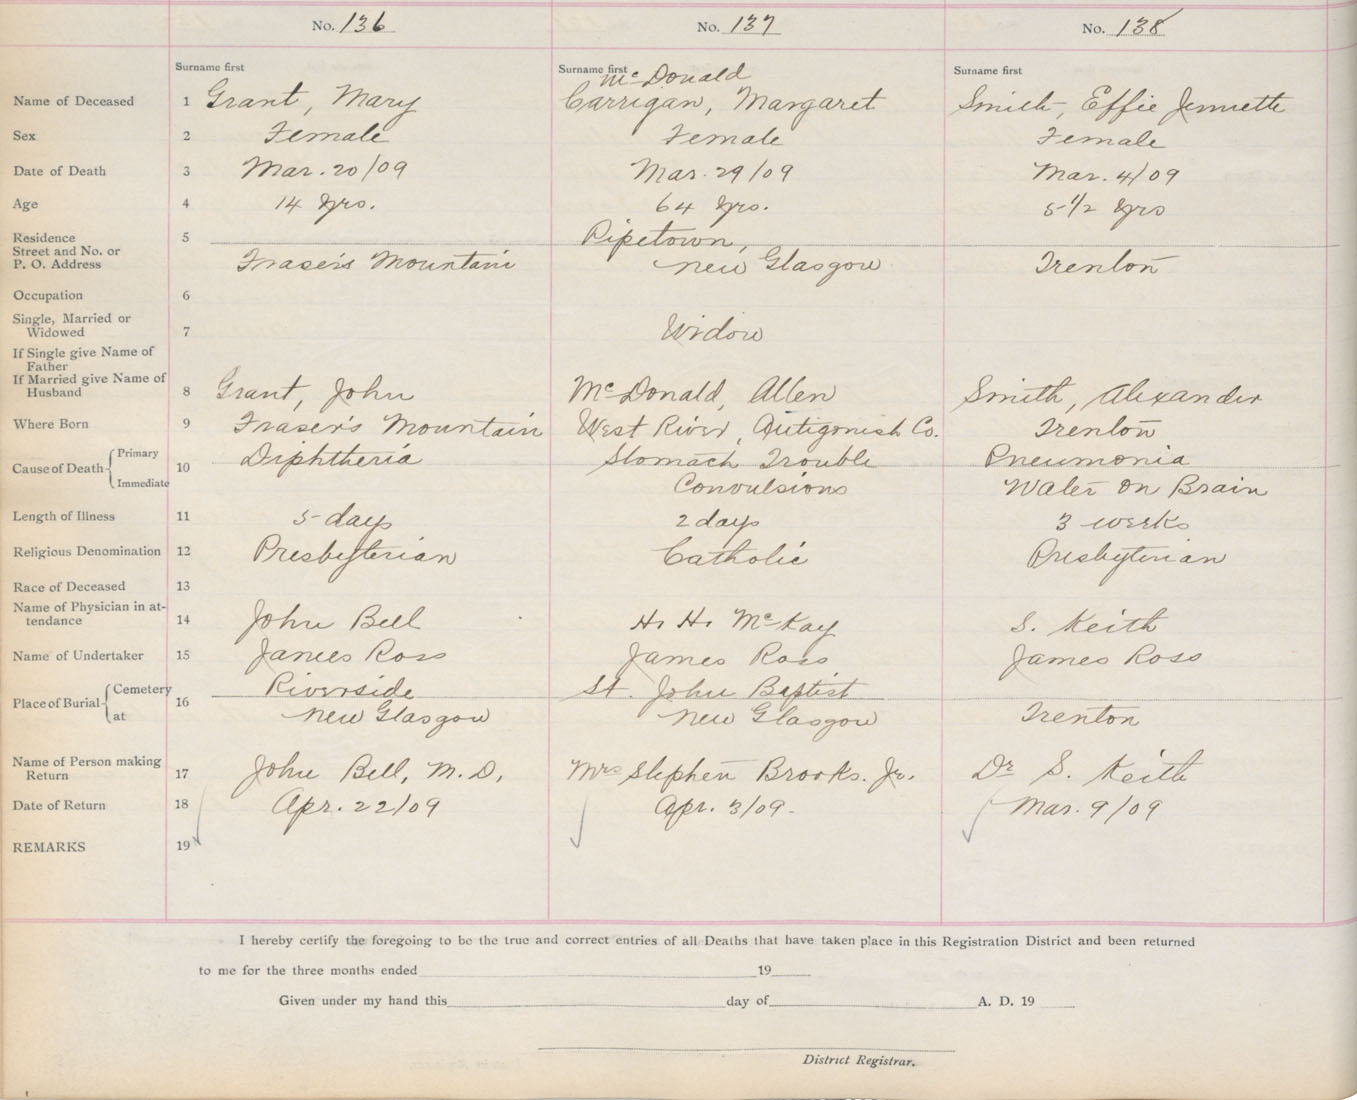 No. 136 No. 137 No. 138
Surname first Surname first Surname first
McDonald
Name of Deceased 1 Grant, Mary Carrigan, Margaret Smith, Effie Jennette
Sex 2 Female Female Female
Date of Death 3 Mar. 20/09 Mar. 29/09 Mar. 4/09
Age 4 14 yrs. 64 yrs. 5 1/2 yrs
Residence 5 Pipetown,
Street and No. or
P. O. Address Fraser's Mountain New Glasgow Trenton
Occupation 6
Single, Married or
Widowed 7 Widow
If Single give Name of
Father
If Married give Name of
Husband 8 Grant, John McDonald, Allen Smith, Alexander
Where Born 9 Fraser's Mountain West River, Antigonish Co. Trenton
Cause of Death Primary 10 Diphtheria Stomach Trouble Pneumonia
Immediate Convulsions Water on Brain
Length of Illness 11 5 days 2 days 3 weeks
Religious Denomination 12 Presbyterian Catholic Presbyterian
Race of Deceased 13
Name of Physician in at-
tendance 14 John Bell H. H. McKay S. Keith
Name of Undertaker 15 James Ross James Ross James Ross
Place of Burial Cemetery 16 Riverside St. John Baptist
at New Glasgow New Glasgow Trenton
Name of Person making
Return 17 John Bell, M. D. Mrs Stephen Brooks. Jr. Dr S. Keith
Date of Return 18 Apr. 22/09 Apr. 3/09. Mar. 9/09
REMARKS 19
I hereby certify the foregoing to be the true and correct entries of all Deaths that have taken place in this Registration District and been returned
to me for the three months ended 19
Given under my hand this day of A. D. 19
District Registrar.